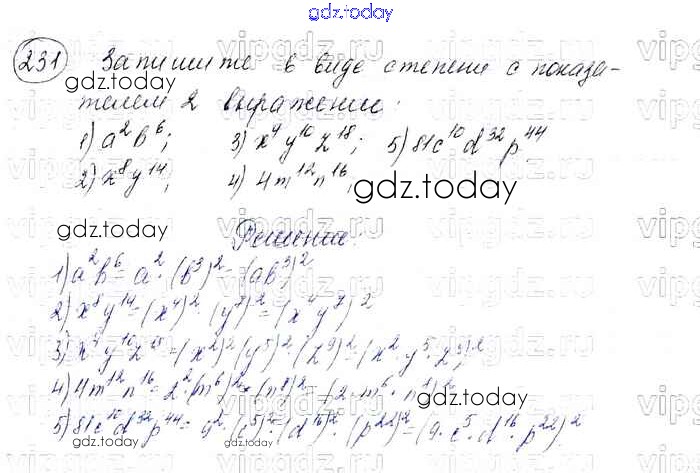 gdz.today
231 Запишите в виде степени с показа-
телем 2 выражение:
1) a²b⁶; 3) x⁴y¹⁰z¹⁸; 5) 81c¹⁰d³²p⁴⁴
2) x⁸y¹⁴; 4) 4m¹²n¹⁶,
gdz.today
gdz.today
gdz.today
Решение
1) a²b⁶ = a²·(b³)² = (ab³)²
2) x⁸y¹⁴ = (x⁴)²·(y⁷)² = (x⁴y⁷)²
3) x⁴y¹⁰z¹⁸ = (x²)²(y⁵)²·(z⁹)² = (x²·y⁵·z⁹)²
4) 4m¹²n¹⁶ = 2²·(m⁶)²·(n⁸)² = (2·m⁶·n⁸)²
5) 81c¹⁰d³²p⁴⁴ = 9²·(c⁵)²·(d¹⁶)²·(p²²)² = (9·c⁵·d¹⁶·p²²)²
gdz.today
gdz.today